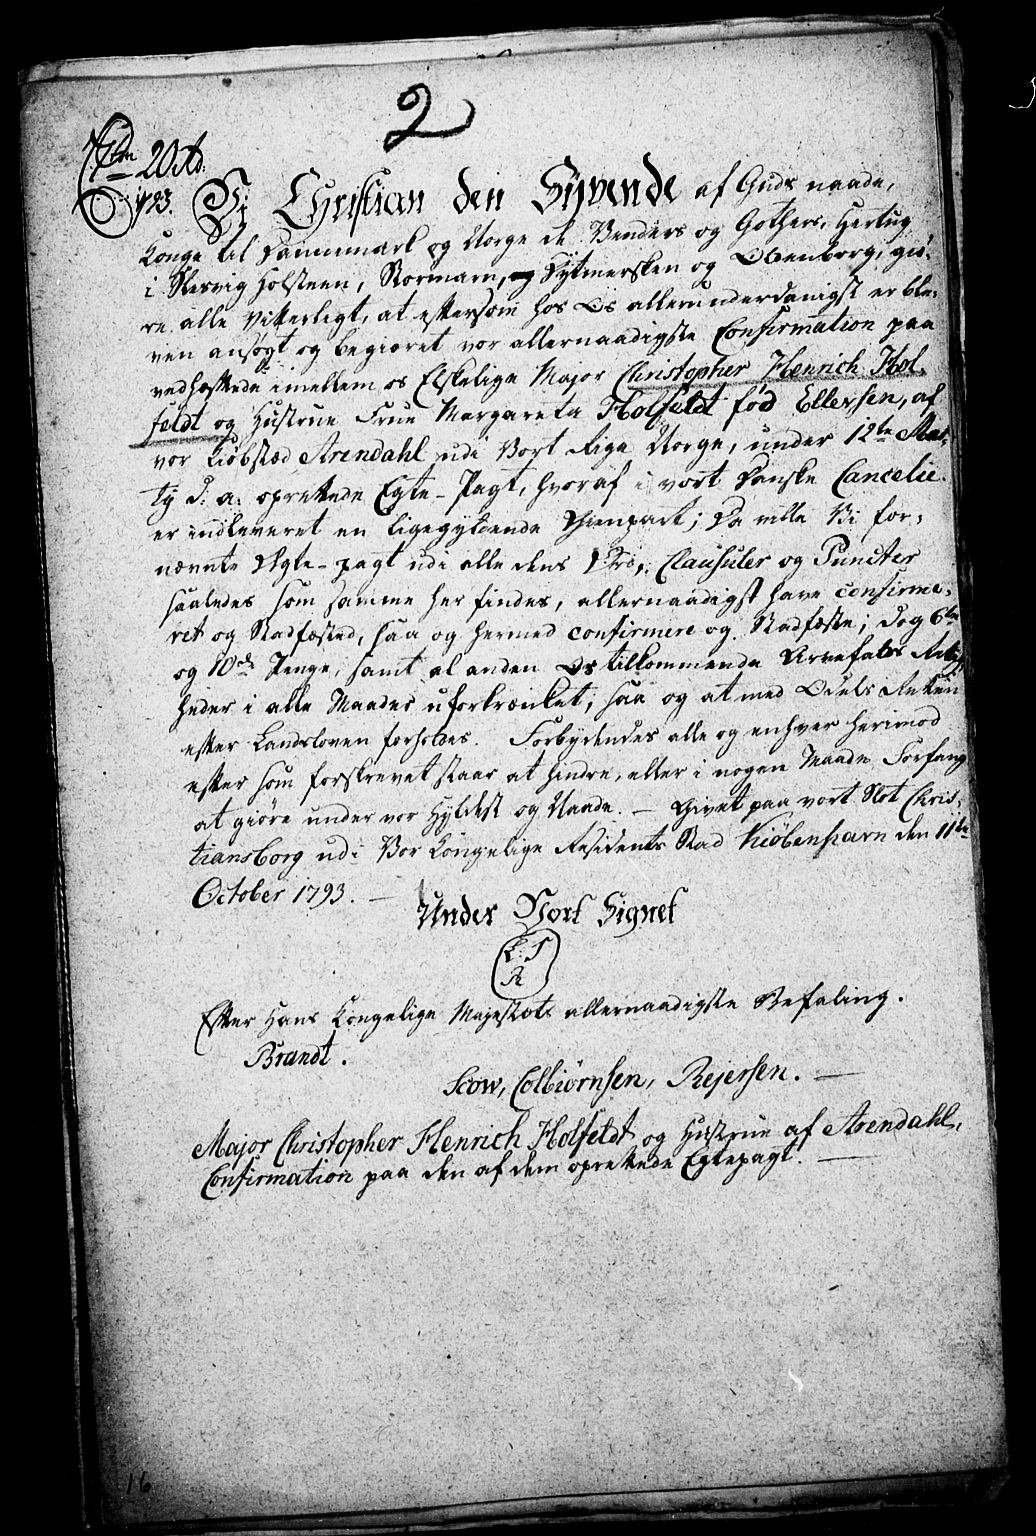 2
20 Rd.
1793. Vi Christian den Syvende af Guds naade,
Konge til Dannmark og Norge de Venders og Gothers, Hertug
i Slesvig Holsteen, Stormarn, og Dytmersken og Oldenborg, giö-
re alle Vitterligt, at eftersom hos Os allerunderdanigst er ble-
ven ansøgt og begieret vor allernaadigste Confirmation paa
vedhæftede imellem os Elskelige Major Christopher Henrich Hol-
feldt og Hustrue Frue Margareta Holfeldt fød Ellersen, af
vor Kiøbstæd Arendahl udi Vort Rige Norge, under 12te Mar-
ty d: a: oprettede Egte-Pagt, hvoraf i vort Danske Cancelie
er indleveret en ligegyldende Gienpart; Da ville Vi for-
nævnte Ægte-pagt udi alle dens Ord, Clausuler og Puncter
saaledes som samme her findes, allernaadigst have confirme-
ret og Stadfæsted, saa og hermed confirmere og Stadfæste; dog 6te
og 10de Penge, samt al anden Os tilkommende Arvefalds Rettig
heder i alle Maader uforkrænket, saa og at med Odels Retten
efter Landsloven forholdes. Forbydendes alle og enhver herimod
efter som forskrevet staar at hindre, eller i nogen Maade Forfang
at giöre under vor Hyldest og Naade. — Givet paa vort Slot Chris-
tiansborg udi Vor Kongelige Residents Stad Kiöbenhavn den 11te
October 1793. —
Under Vort Signet
L: S
R
Efter Hans Kongelige Majestæts allernaadigste Befaling.
Brandt.
Scow, Colbiørnsen, Rejersen. —
Major Christopher Henrich Holfeldt og Hustrue af Arendahl,
Confirmation paa den af dem oprettede Egtepagt. —
16